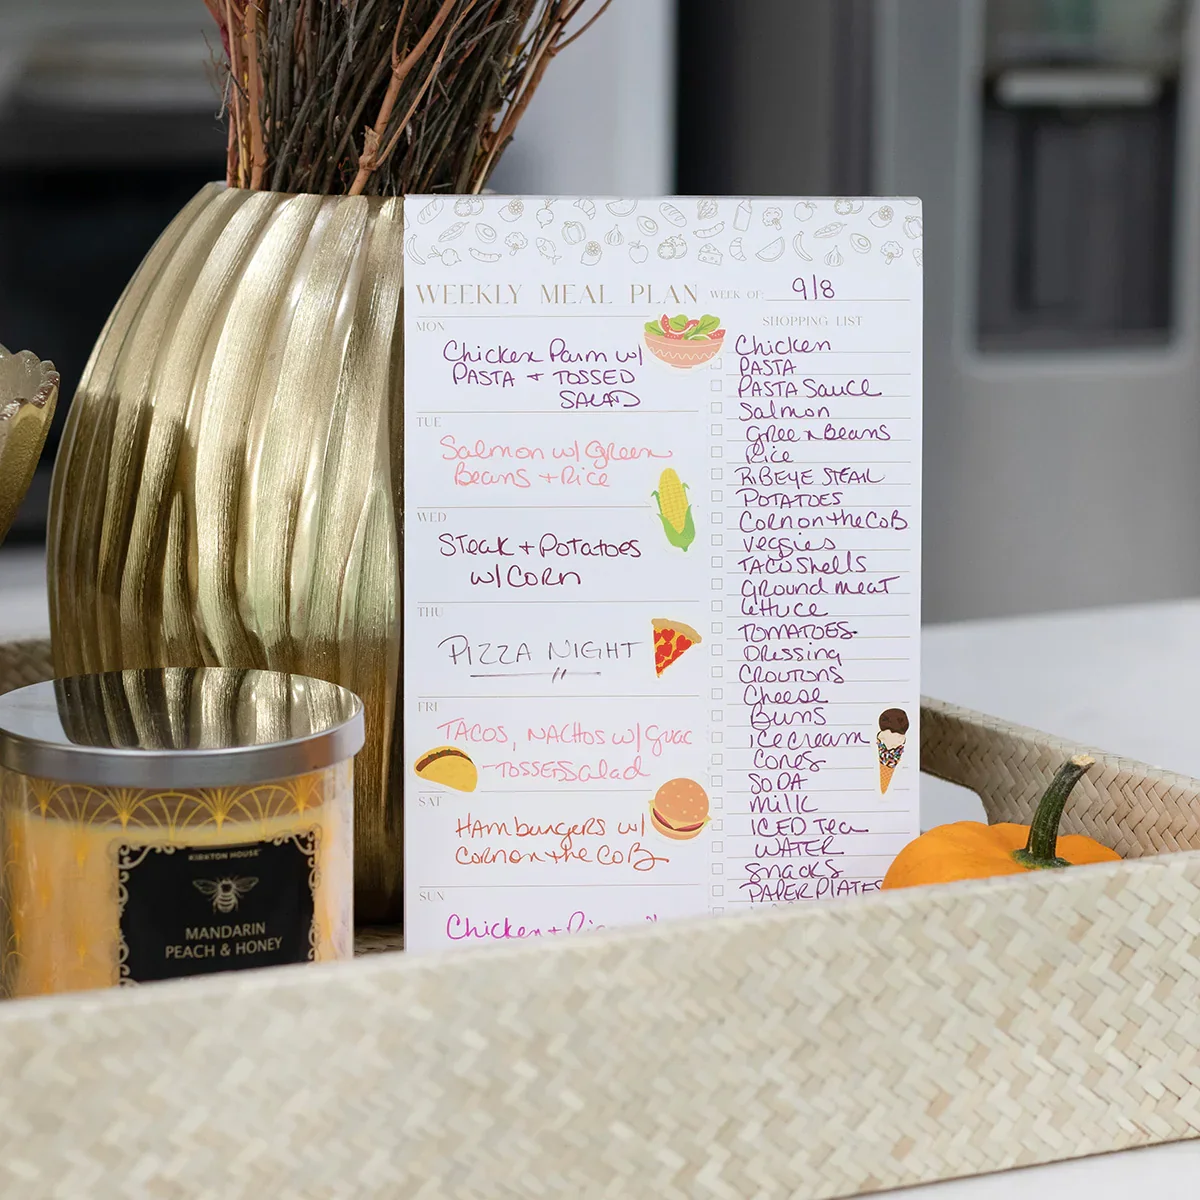 WEEKLY MEAL PLAN
WEEK OF: 9/8
MON
Chicken Parm w/
PASTA + TOSSED
SALAD
TUE
Salmon w/ Green
Beans + Rice
WED
Steak + Potatoes
w/ Corn
THU
PIZZA NIGHT
FRI
TACOS, NACHOS w/ guac
-TOSSED Salad
SAT
Hamburgers w/
Corn on the CoB
SUN
Chicken +
SHOPPING LIST
Chicken
PASTA
PASTA Sauce
Salmon
Green Beans
Rice
RIBEYE STEAK
POTATOES
Corn on the CoB
Veggies
TACO Shells
Ground meat
lettuce
TOMATOES
Dressing
CROUTONS
Cheese
Buns
ICE Cream
Cones
SODA
Milk
ICED Tea
WATER
Snacks
PAPER PLATES
KIRKTON HOUSE
MANDARIN
PEACH & HONEY